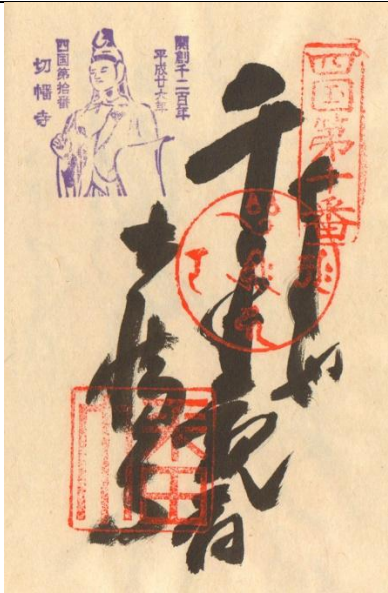 四国第十番
千手観音
切幡寺
開創千二百年
平成廿六年
四国第拾番
切幡寺